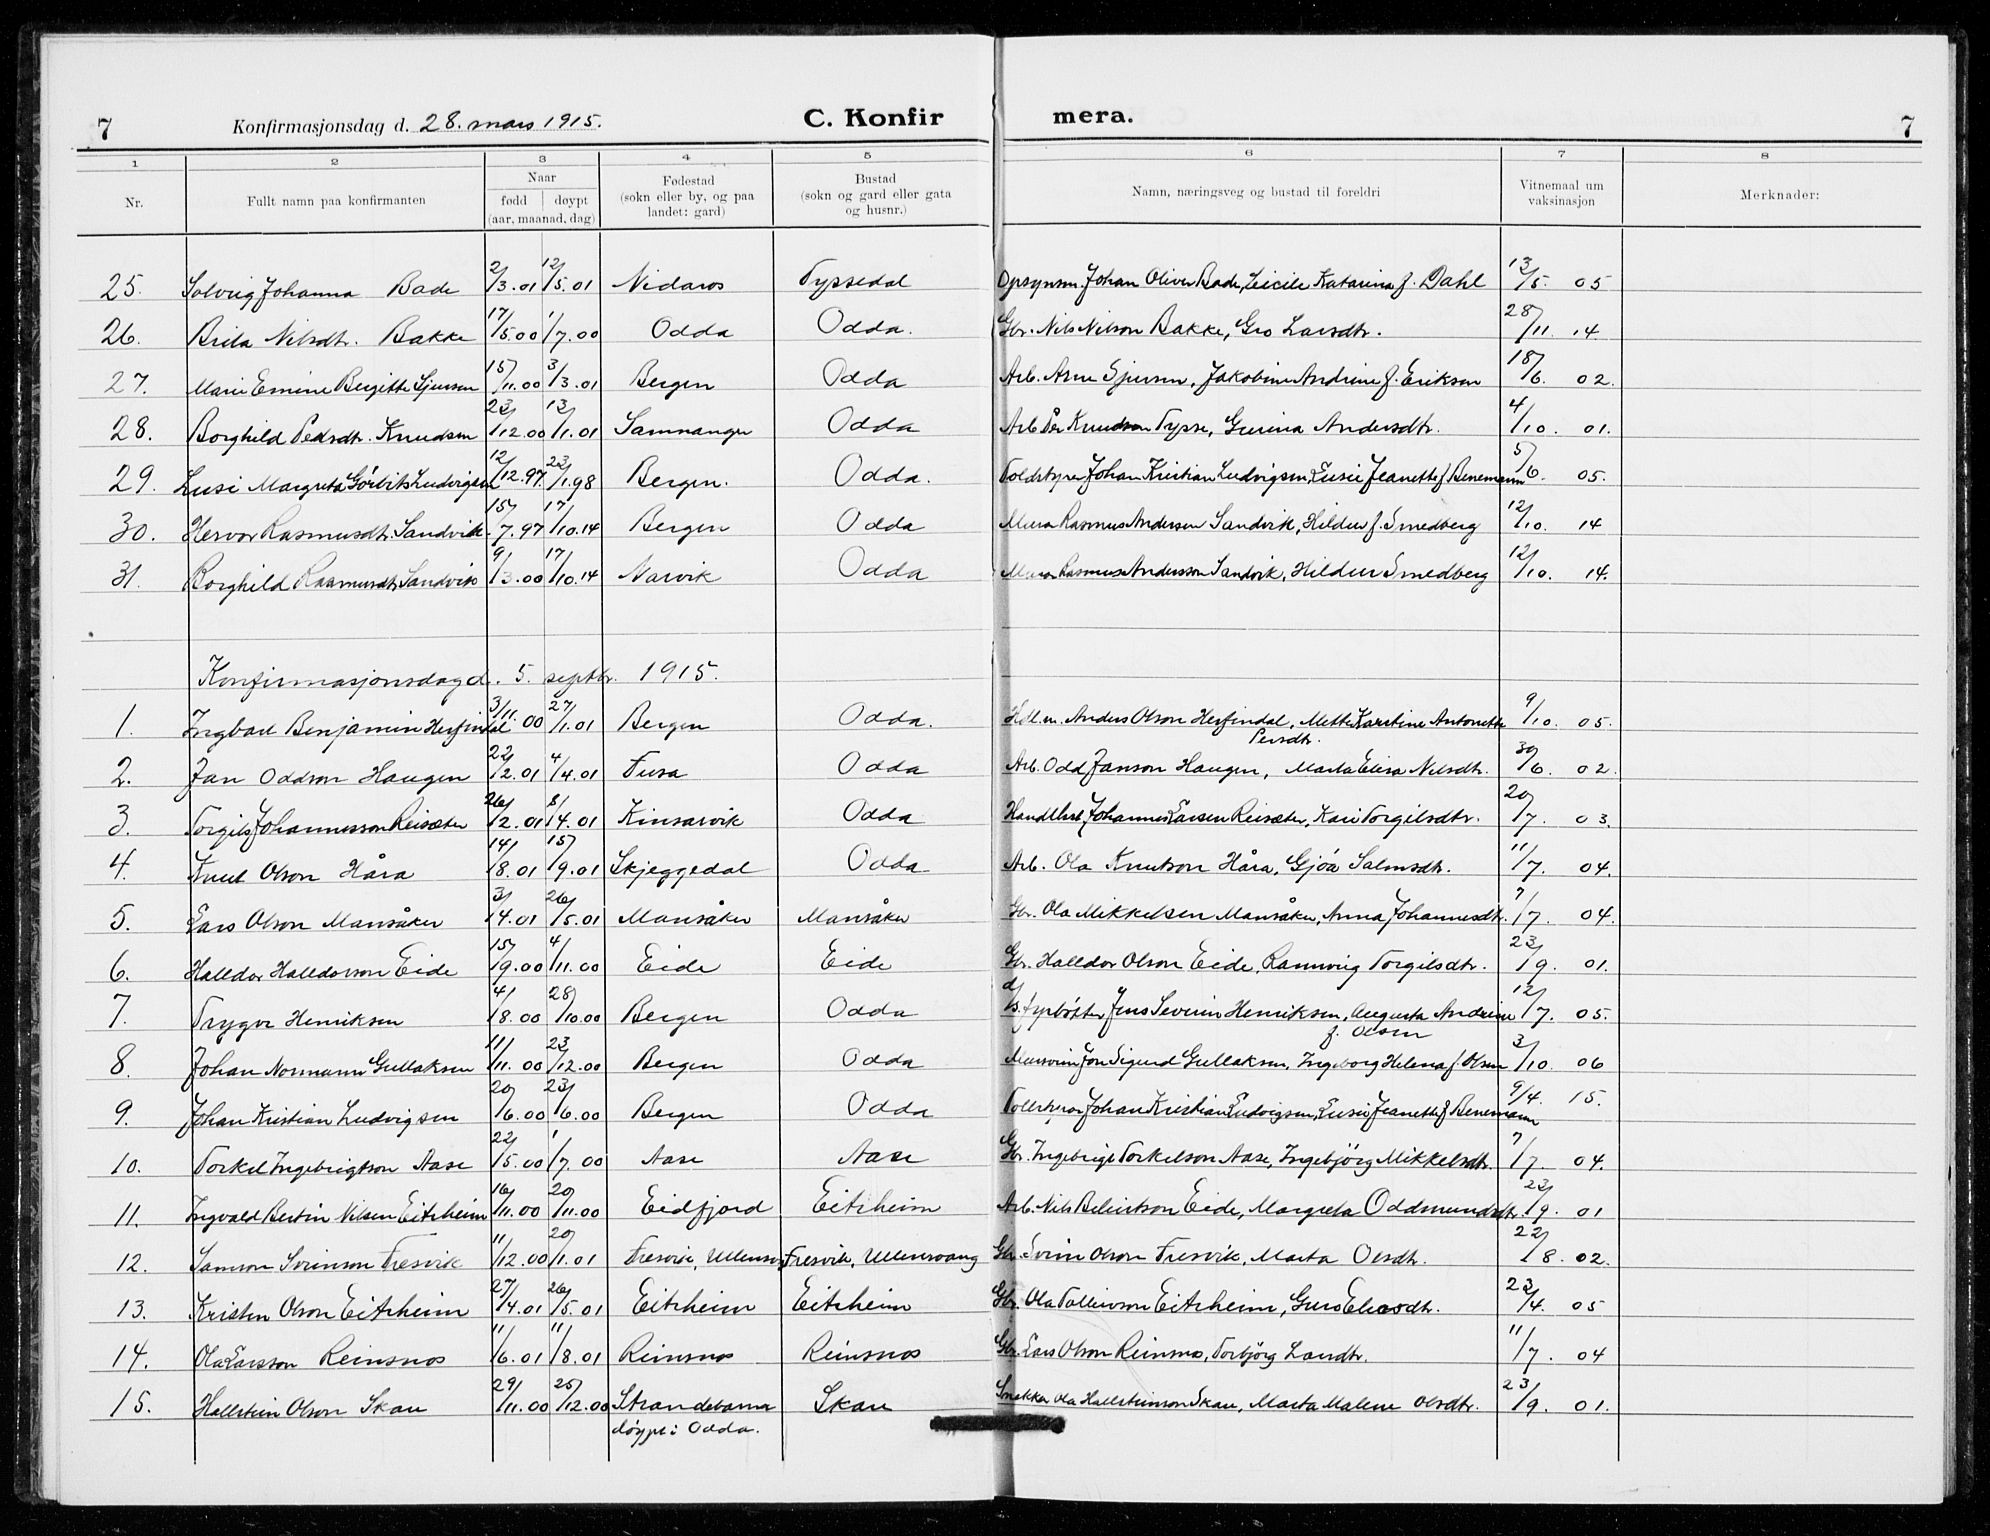 7 Konfirmasjonsdag d. 28. mars 1915. C. Konfir mera. 7
1 2 3 4 5 6 7 8
Nr. Fullt namn paa konfirmanten Naar fødd døypt (aar, maanad, dag) Fødestad (sokn eller by, og paa landet: gard) Bustad (sokn og gard eller gata og husnr.) Namn, næringsveg og bustad til foreldri Vitnemaal um vaksinasjon Merknader:
25. Solveig Johanna Bade 2/3.01 12/5.01 Nidaros Tyssedal Opsynsm. Johan Oliver Bade, Cicile Katarina f. Dahl 13/5. 05
26. Brita Nilsdtr. Bakke 17/5.00 1/7.00 Odda Odda. Gbr. Nils Nilson Bakke, Gro Larsdtr. 28/11. 14
27. Marie Emine Bergitte Sjursen 15/11.00 3/3.01 Bergen Odda Arb. Arne Sjursen, Jakobine Andrine f. Erikson 18/6. 02.
28. Borghild Pedsdtr. Knudsen 23/12.00 13/1.01 Samnanger Odda Arb. Per Knudson Tysse, Gurina Andersdtr. 4/10. 01.
29. Lusi Margreta Görbits Ludvigsen 12/12.97. 23/1.98 Bergen. Odda. Toldstyrer Johan Kristian Ludvigsen, Lusie Jeanette f. Benemann 5/6. 05.
30. Hervor Rasmusdtr. Sandvik. 15/7.97 17/10.14 Bergen Odda Murar Rasmus Andersen Sandvik, Hildur f. Smedberg 12/10. 14
31. Borghild Rasmusdtr. Sandvik 9/3.00 17/10.14 Narvik Odda Murar Rasmus Andersson Sandvik, Hildur Smedberg 12/10. 14.
Konfirmasjonsdag d. 5. septbr. 1915.
1. Ingvar Benjamin Herfindal 3/11.00 27/1.01 Bergen Odda. Hdl.m. Anders Olson Herfindal, Mette Karstine Antonette 9/10. 05.
Persdtr.
2. Jan Oddson Haugen 22/2.01 4/4.01 Fusa Odda Arb. Odd Janson Haugen, Marta Elisa Nilsdtr. 30/6. 02.
3. Torgils Johannesson Reisæter 26/2.01 8/4.01 Kinsarvik Odda Handelsst. Johannes Larsen Reisæter, Kari Torgilsdtr. 20/7. 03.
4. Knut Olson Håra 14/8.01 15/9.01 Skjeggedal Odda Arb. Ola Knutson Håra, Gjøa Salmsdtr. 11/7. 04.
5. Lars Olson Mansåker 3/4.01 26/5.01 Mansåker Mansåker Gbr. Ola Mikkelsen Mansåker, Anna Johannesdtr. 7/7. 04.
6. Halldor Halldorson Eide 15/9.00 4/11.00 Eide Eide Gbr. Halldor Olson Eide, Ranveig Torgilsdtr. 23/9. 01.
7. Trygve Henriksen 4/8.00 28/10.00 Bergen Odda d/s. fyrbøter Jens Severin Henriksen, Augusta Andrine 12/7. 05.
f. Olsen
8. Johan Normann Gullaksen 11/11.00 23/12.00 Bergen Odda Jon Sigurd Gullaksen, Ingeborg Helena f. Olsen 3/10. 06
9. Johan Kristian Ludvigsen 20/6.00 23/6.00 Bergen Odda Tollstyrar Johan Kristian Ludvigsen, Lusie Jeanette f. Benemann 9/4. 15.
10. Torkel Ingebrigtson Aase 22/5.00 1/7.00 Aase Aase Gbr. Ingebrigt Torkelson Aase, Ingebjörg Mikkelsdtr. 7/7. 04.
11. Ingvald Bertin Nilsen Eitrheim 16/11.00 20/11.00 Eidfjord Eitrheim Arb. Nils Eide, Margreta Oddmundsdtr. 23/9. 01
12. Samson Sveinson Fresvik 11/12.00 20/1.01 Fresvik, Ullensv. Fresvik, Ullensvang Gbr. Svein Olson Fresvik, Marta Olsdtr. 22/8. 02.
13. Kristen Olson Eitrheim 27/4.01 26/5.01 Eitrheim Eitrheim Gbr. Ola Tolleivson Eitrheim, Guro 23/4. 05
14. Ola Larsson Reinsnos 11/6.01 11/8.01 Reinsnos Reinsnos Gbr. Lars Olson Reinsnos, Torbjörg Larsdtr. 11/7. 04
15. Hallstein Olson Skau 29/11.00 25/12.00 Strandebarm Skau Snekkar Ola Hallsteinson Skau, Marta Malene Olsdtr. 23/9. 01.
døypt i Odda.